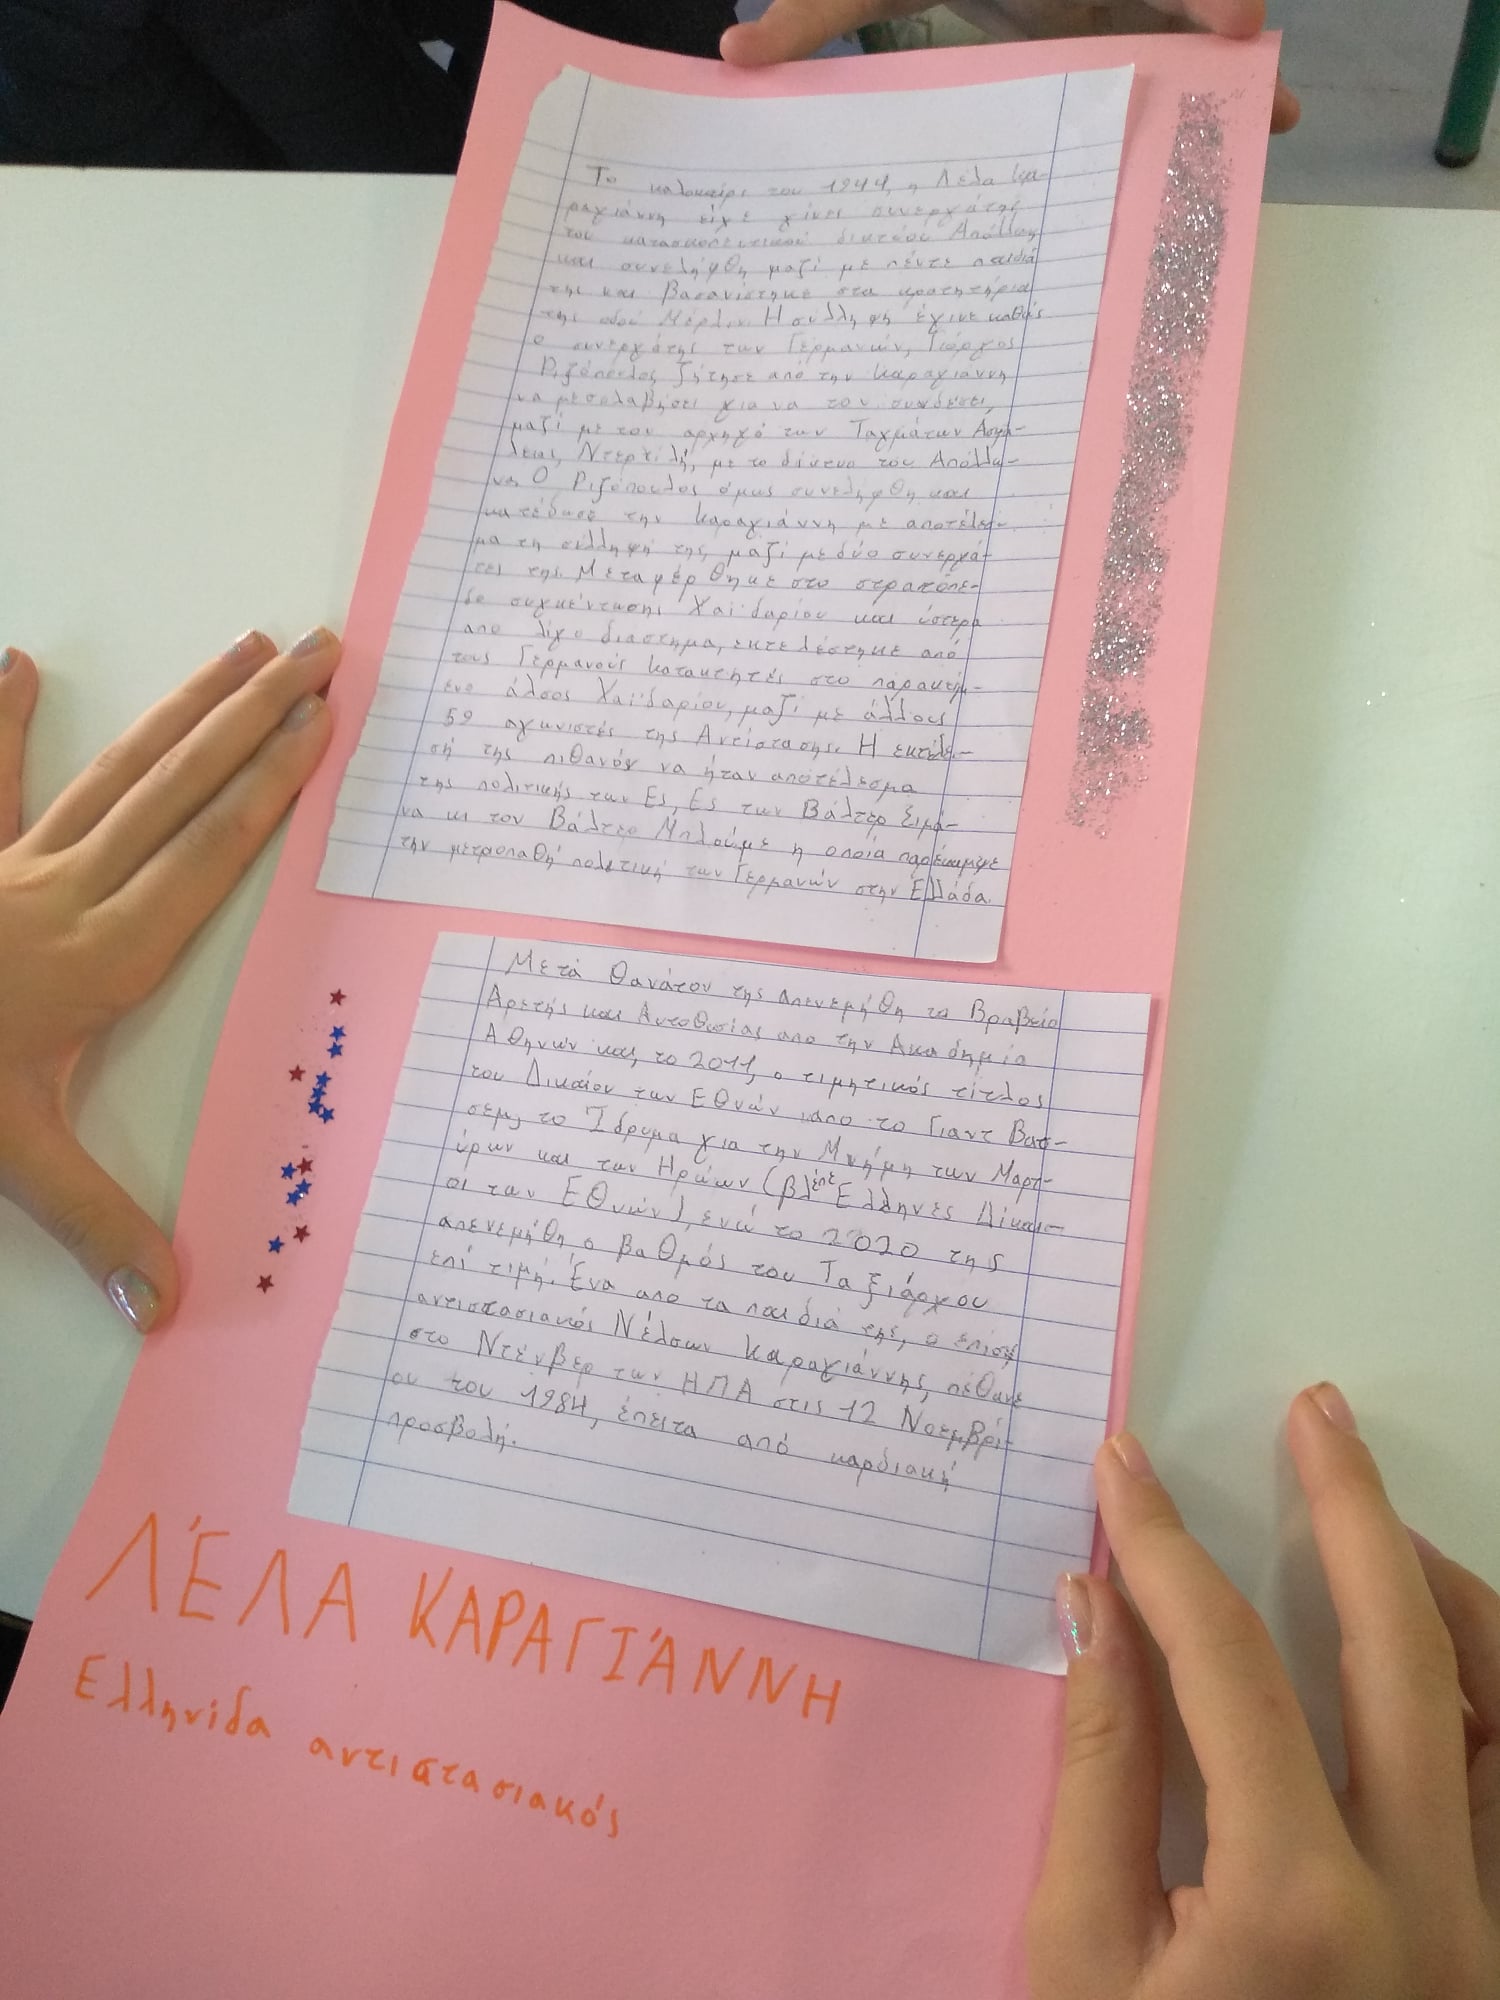 Το καλοκαίρι του 1944, η Λέλα Κα-
ραγιάννη είχε γίνει συνεργάτης
του κατασκοπευτικού δικτύου Απόλλων
και συνελήφθη μαζί με πέντε παιδιά
της και βασανίστηκε στα κρατητήρια
της οδού Μέρλιν. Η σύλληψή έγινε καθώς
ο συνεργάτης των Γερμανών, Γιώργος
Ριζόπουλος ζήτησε από την Καραγιάννη
να μεσολαβήσει για να τον συνδέσει,
μαζί με τον αρχηγό των Ταγμάτων Ασφα-
λείας, Ντερτιλή, με το δίκτυο του Απόλλω-
να. Ο Ριζόπουλος όμως συνελήφθη και
κατέδωσε την Καραγιάννη με αποτέλεσ-
μα τη σύλληψή της, μαζί με δύο συνεργά-
τες της. Μεταφέρθηκε στο στρατόπε-
δο συγκέντωσης Χαϊδαρίου και ύστερα
από λίγο διάστημα, εκτελέστηκε από
τους Γερμανούς κατακτητές στο παρακείμ-
ενο άλσος Χαϊδαρίου, μαζί με άλλους
59 αγωνιστές της Αντίστασης. Η εκτέλε-
σή της πιθανόν να ήταν αποτέλεσμα
της πολιτικής των Ες, Ες των Βάλτερ Σιμά-
να κι τον Βάλτερ Μπλούμε η οποία παρέκαμψε
την μετριοπαθή πολιτική των Γερμανών στην Ελλάδα.
Μετά θανάτον της απενεμήθη το Βραβείο
Αρετής και Αυτοθυσίας απο την Ακαδημία
Αθηνών και, το 2011, ο τιμητικός τίτλος
του Δικαίου των Εθνών, απο το Γιαντ Βασ-
σεμ, το Ίδρυμα για την Μνήμη των Μαρτ-
ύρων και των Ηρώων (βλέπε Ελληνες Δίκαι-
οι των Εθνών), ενώ το 2020 της
απενεμήθη ο βαθμός του Ταξιάρχου
επί τιμή. Ένα απο τα παιδιά της, ο επίσης
αντιστασιακός Νέλσων Καραγιάννης, πέθανε
στο Ντένβερ των ΗΠΑ στις 12 Νοεμβρί-
ου του 1984, έπειτα από καρδιακή
προσβολή.
ΛΈΛΑ ΚΑΡΑΓΙΆΝΝΗ
Ελληνίδα αντιστασιακός